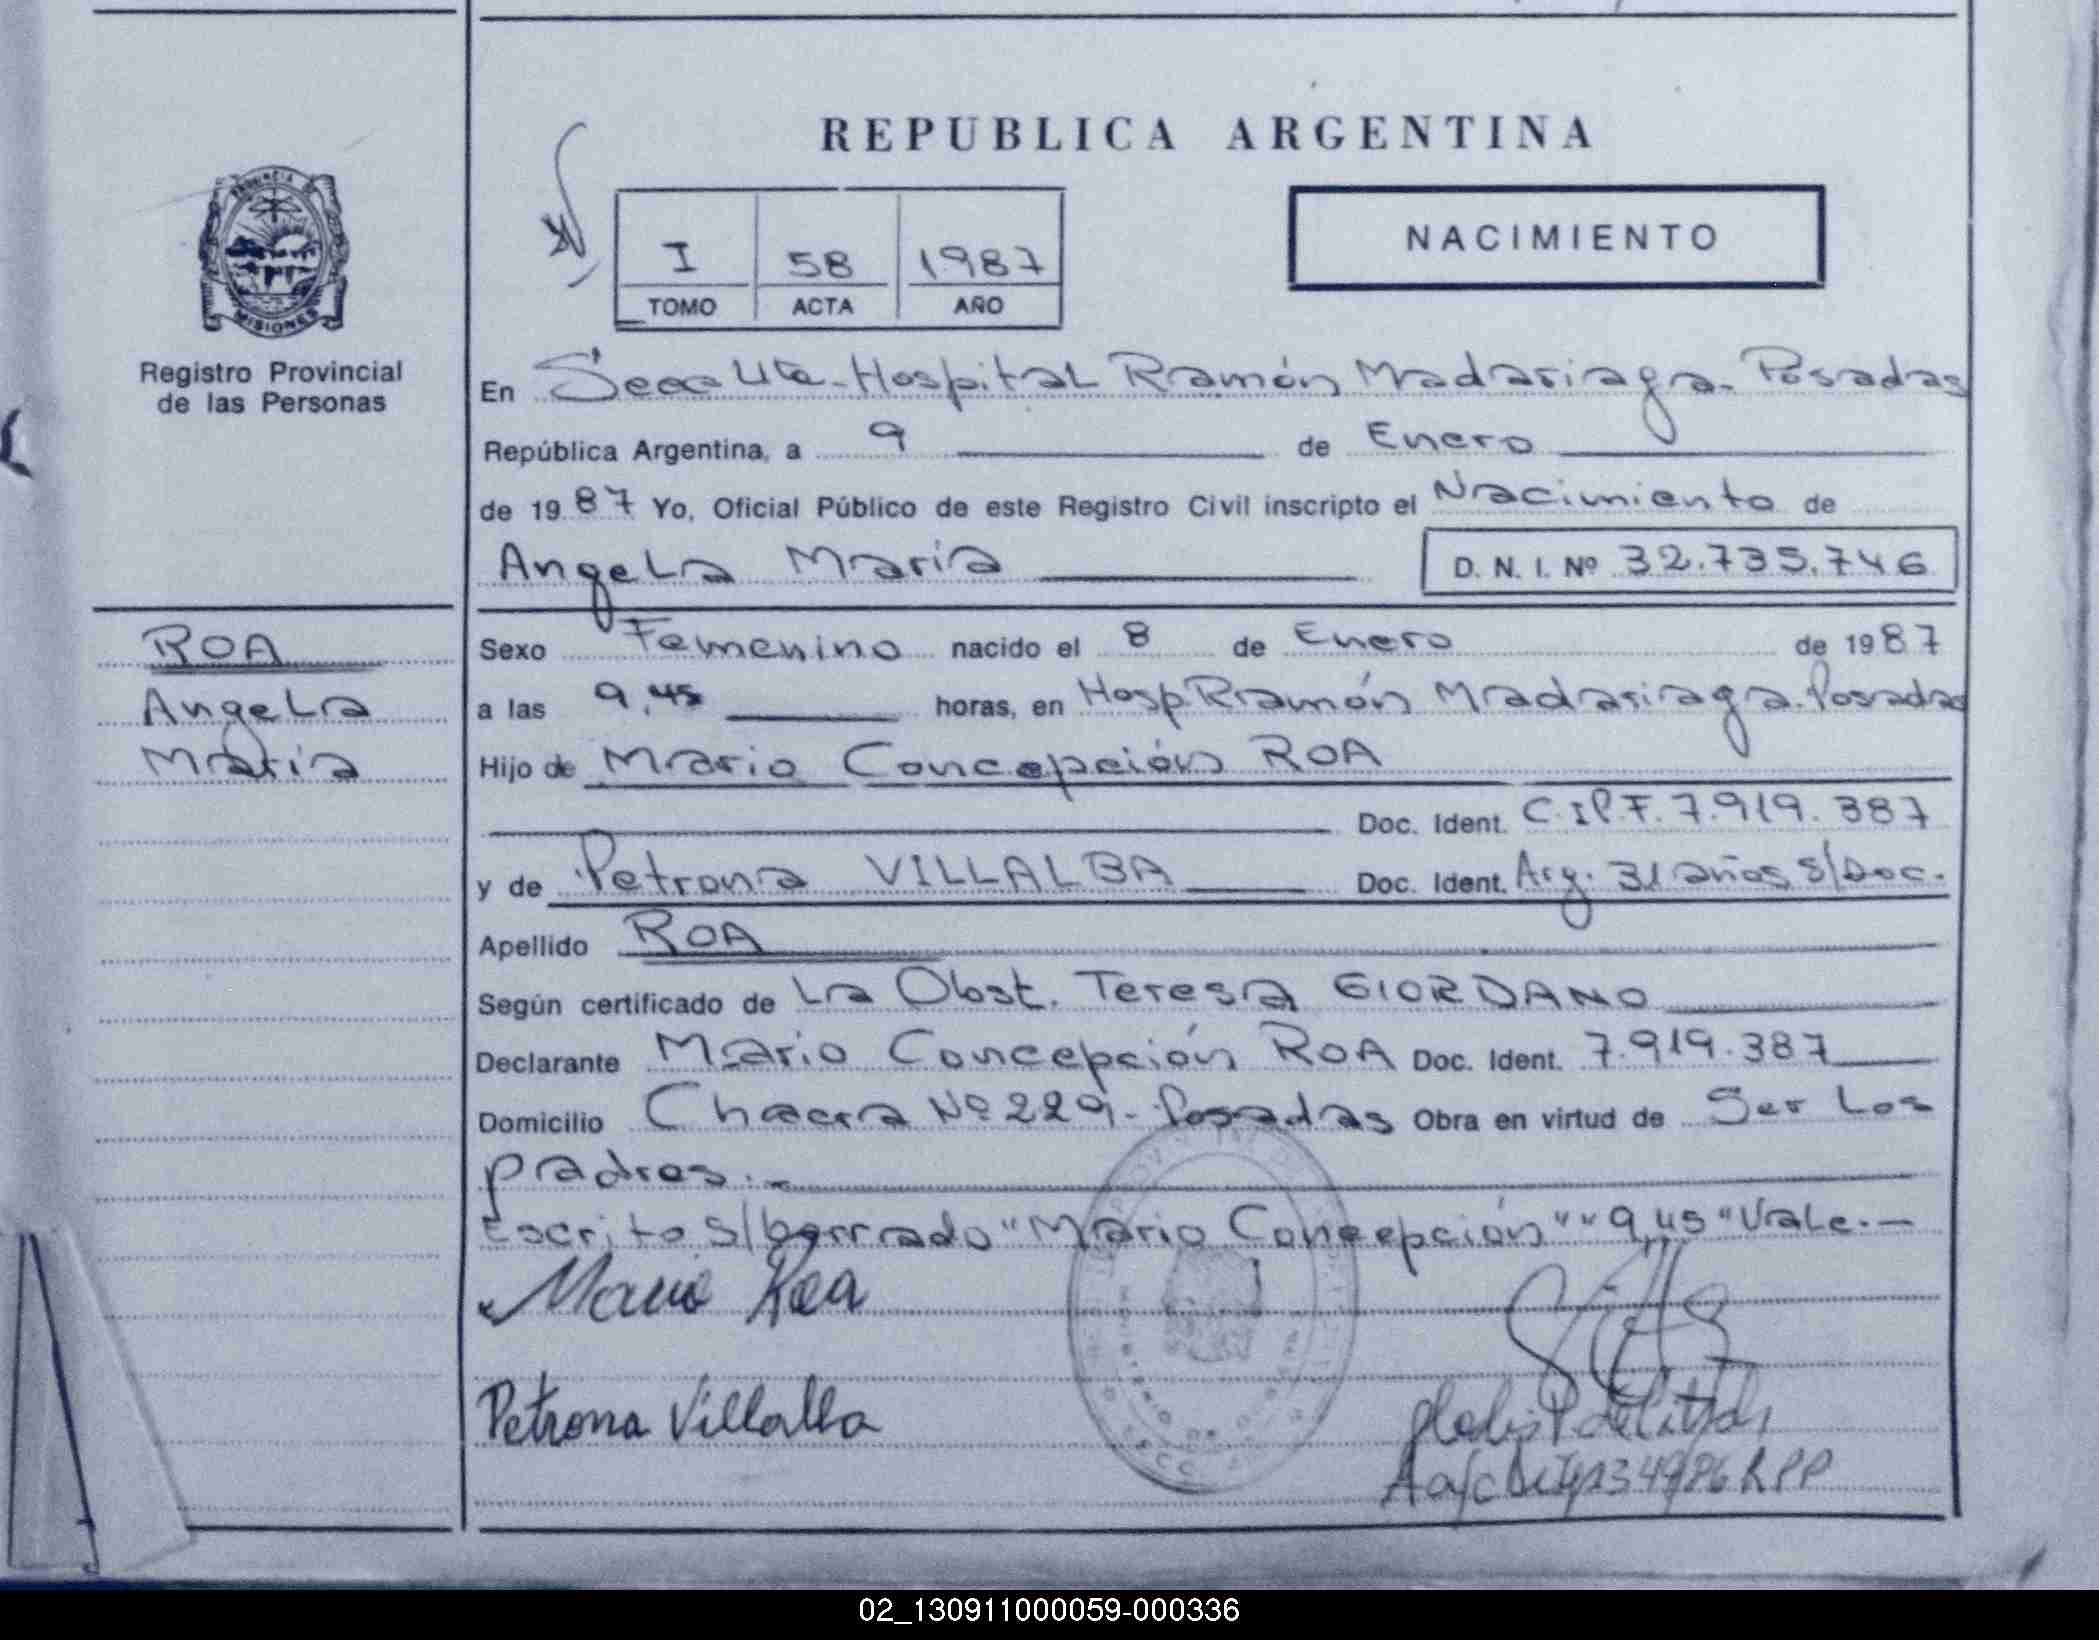 REPUBLICA ARGENTINA
PROVINCIA D
MISIONES
Registro Provincial
de las Personas
I 58 1987
TOMO ACTA AÑO
NACIMIENTO
En Secc 4ta-Hospital Ramón Madariaga-Posadas
República Argentina, a 9 de Enero
de 1987 Yo, Oficial Público de este Registro Civil inscripto el Nacimiento de
Angela Maria
D. N. I. Nº 32.735.746
ROA
Angela
Maria
Sexo Femenino nacido el 8 de Enero de 1987
a las 9,45 horas, en Hosp Ramón Madariaga.Posadas
Hijo de Mario Concepción ROA
Doc. Ident. C.I.P.F. 7.919.387
y de Petrona VILLALBA Doc. Ident. Arg. 31 años S/Doc.
Apellido ROA
Según certificado de La Obst. Teresa GIORDANO
Declarante Mario Concepción ROA Doc. Ident. 7.919.387
Domicilio Chacra Nº 229-Posadas Obra en virtud de Ser Los
padres.-
Escrito S/borrado "Mario Concepción" "9,45" Vale.-
Mario Roa
Petrona Villalba
RPP
02_130911000059-000336